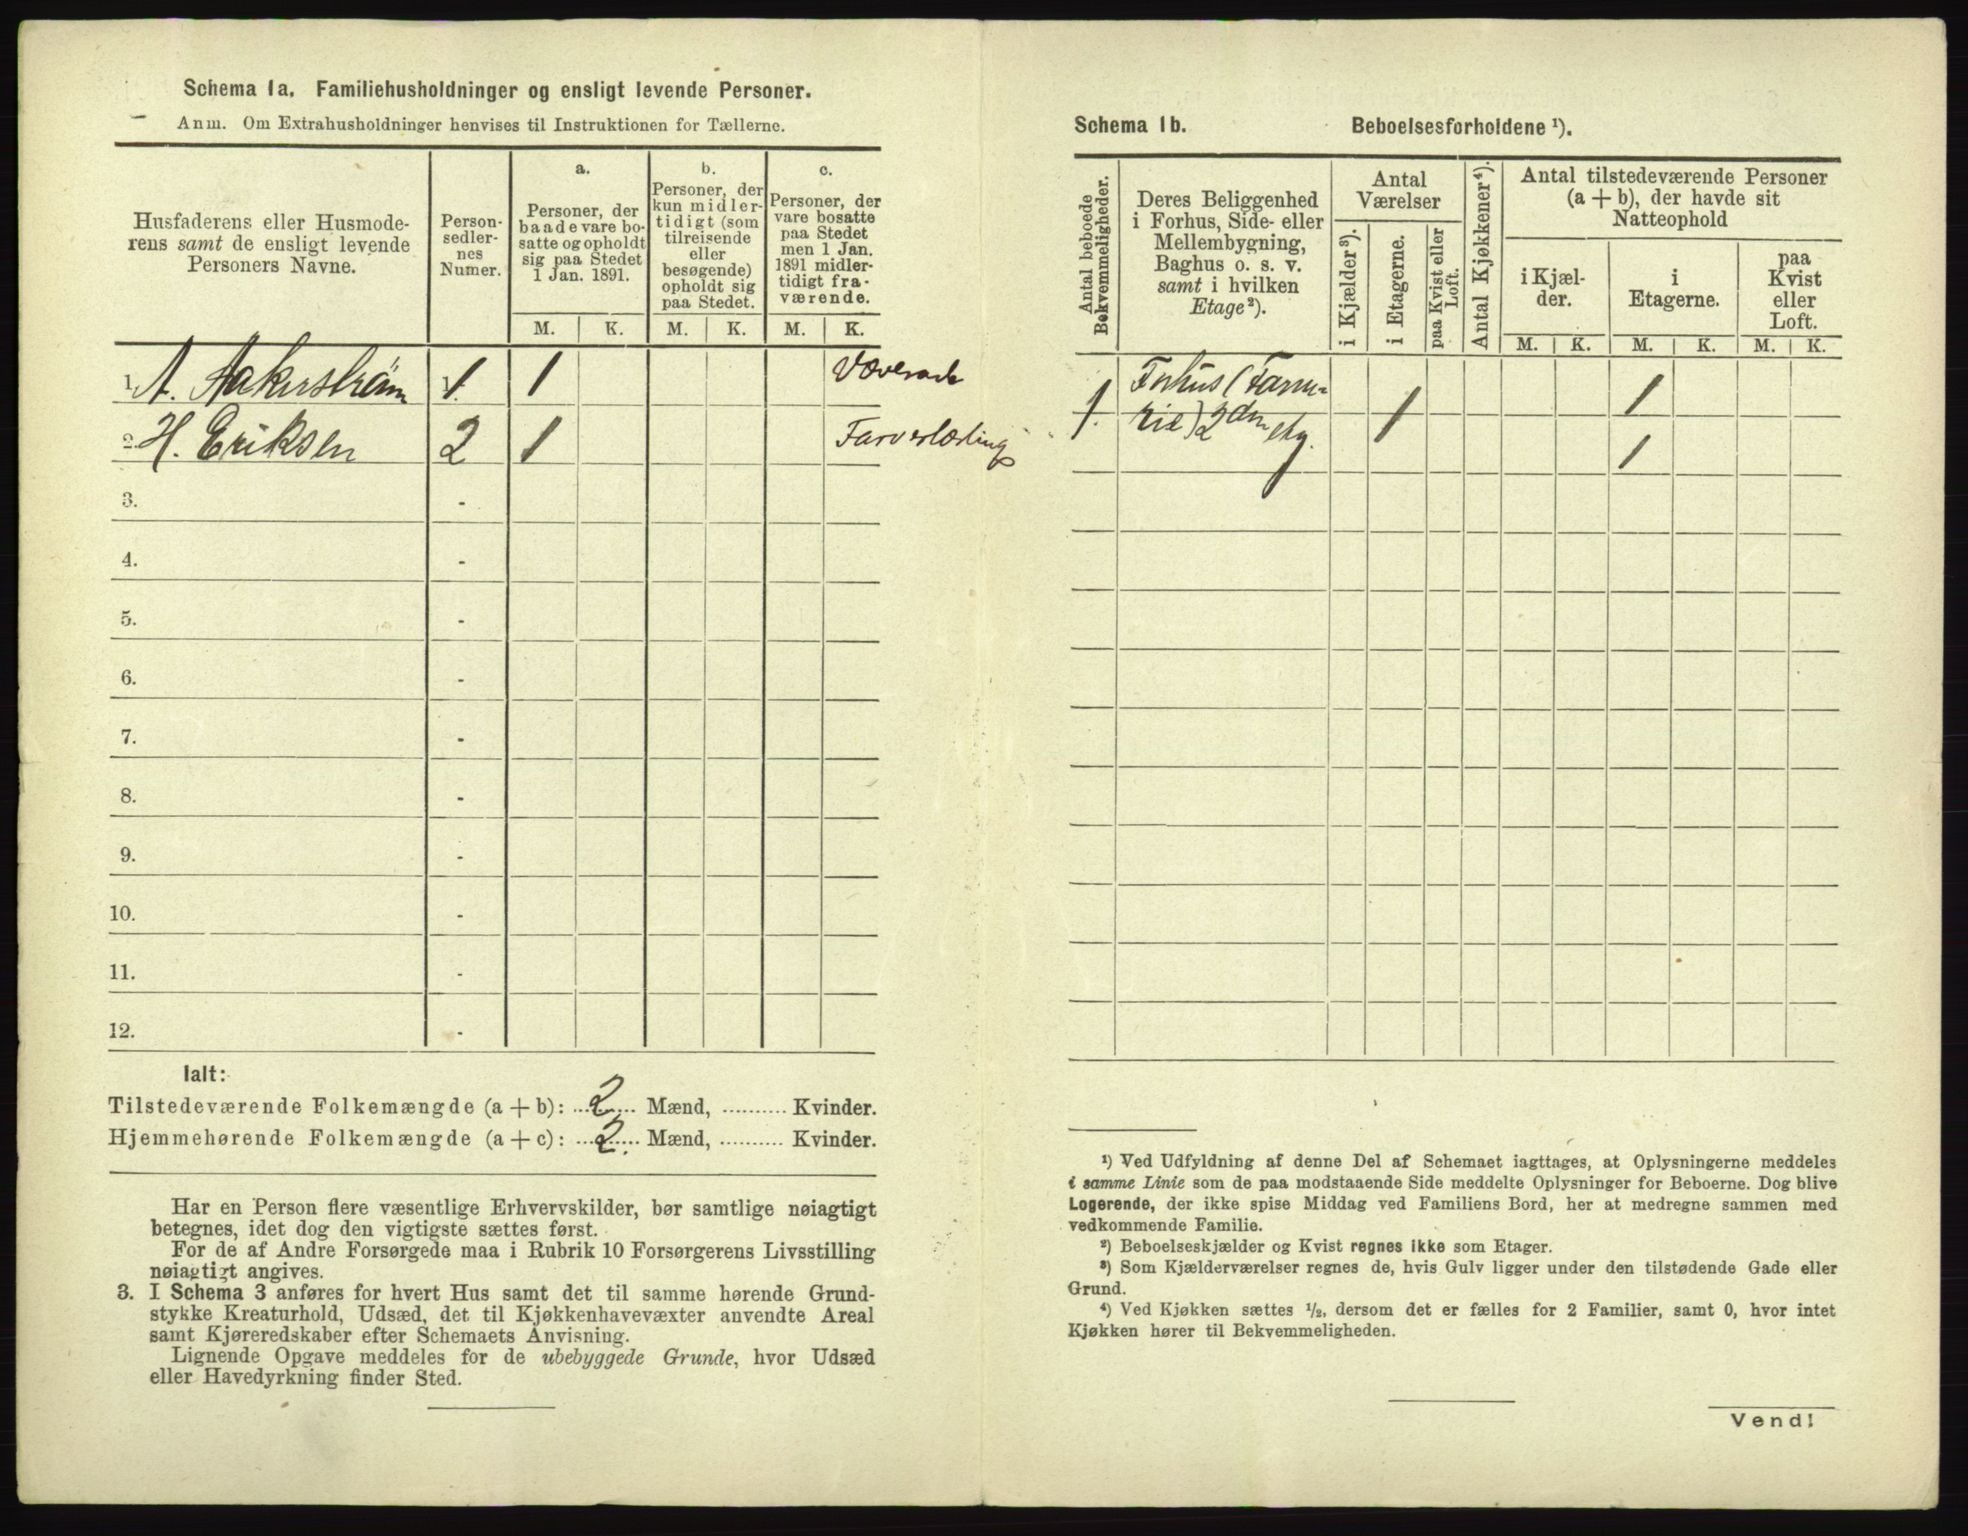 Schema 1a. Familiehusholdninger og ensligt levende Personer.
Anm. Om Extrahusholdninger henvises til Instruktionen for Tællerne.
Husfaderens eller Husmode-
rens samt de ensligt levende
Personers Navne.
Person-
sedler-
nes
Numer.
a.
Personer, der
baade vare bo-
satte og opholdt
sig paa Stedet
1 Jan. 1891.
b.
Personer, der
kun midler-
tidigt (som
tilreisende
eller
besøgende)
opholdt sig
paa Stedet.
c.
Personer, der
vare bosatte
paa Stedet
men 1 Jan.
1891 midler-
tidigt fra-
værende.
M. K. M. K. M. K.
1. A. Aakerstrøm 1. 1
2. H. Eriksen 2 1
3. -
4. -
5. -
6. -
7. -
8. -
9. -
10. -
11. -
12. -
Ialt:
Tilstedeværende Folkemængde (a + b): 2 Mænd, .......... Kvinder.
Hjemmehørende Folkemængde (a + c): 2. Mænd, .......... Kvinder.
Har en Person flere væsentlige Erhvervskilder, bør samtlige nøiagtigt
betegnes, idet dog den vigtigste sættes først.
For de af Andre Forsørgede maa i Rubrik 10 Forsørgerens Livsstilling
nøiagtigt angives.
3. I Schema 3 anføres for hvert Hus samt det til samme hørende Grund-
stykke Kreaturhold, Udsæd, det til Kjøkkenhavevæxter anvendte Areal
samt Kjøreredskaber efter Schemaets Anvisning.
Lignende Opgave meddeles for de ubebyggede Grunde, hvor Udsæd
eller Havedyrkning finder Sted.
Schema 1b. Beboelsesforholdene ¹).
Antal beboede
Bekvemmeligheder.
Deres Beliggenhed
i Forhus, Side- eller
Mellembygning,
Baghus o. s. v.
samt i hvilken
Etage²).
Antal
Værelser
i Kjælder³).
i Etagerne.
paa Kvist eller
Loft.
Antal Kjøkkener⁴).
Antal tilstedeværende Personer
(a + b), der havde sit
Natteophold
i Kjæl-
der.
i
Etagerne.
paa
Kvist
eller
Loft.
M. K. M. K. M. K.
1. Forhus (Farve-
rie) 2den etg. 1 1
1
¹) Ved Udfyldning af denne Del af Schemaet iagttages, at Oplysningerne meddeles
i samme Linie som de paa modstaaende Side meddelte Oplysninger for Beboerne. Dog blive
Logerende, der ikke spise Middag ved Familiens Bord, her at medregne sammen med
vedkommende Familie.
²) Beboelseskjælder og Kvist regnes ikke som Etager.
³) Som Kjælderværelser regnes de, hvis Gulv ligger under den tilstødende Gade eller
Grund.
⁴) Ved Kjøkken sættes ½, dersom det er fælles for 2 Familier, samt 0, hvor intet
Kjøkken hører til Bekvemmeligheden.
Vend!